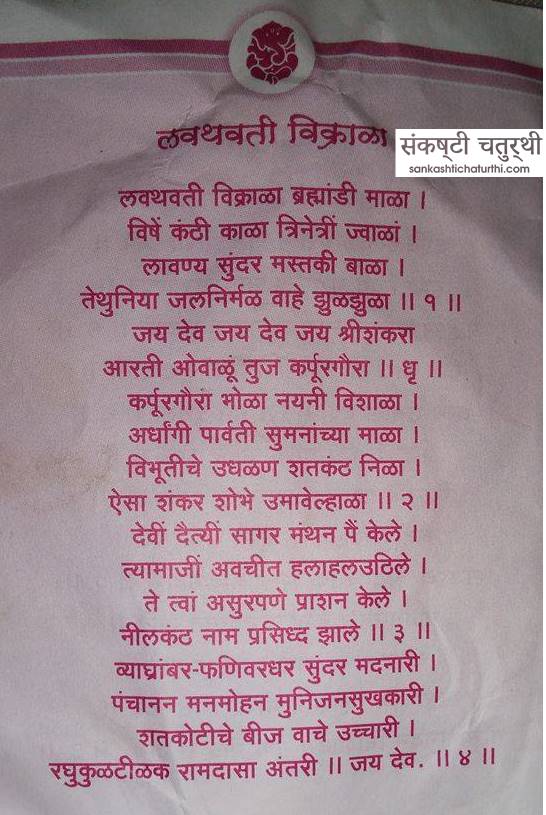 लवथवती विक्राळा
संकष्टी चतुर्थी
sankashtichaturthi.com
लवथवती विक्राळा ब्रह्मांडी माळा ।
विषें कंठी काळा त्रिनेत्रीं ज्वाळां ।
लावण्य सुंदर मस्तकी बाळा ।
तेथुनिया जलनिर्मळ वाहे झुळझुळा ॥ १ ॥
जय देव जय देव जय श्रीशंकरा
आरती ओवाळूं तुज कर्पूरगौरा ॥ धृ ॥
कर्पूरगौरा भोळा नयनी विशाळा ।
अर्धांगी पार्वती सुमनांच्या माळा ।
विभूतीचे उधळण शतकंठ निळा ।
ऐसा शंकर शोभे उमावेल्हाळा ॥ २ ॥
देवीं दैत्यीं सागर मंथन पैं केले ।
त्यामाजीं अवचीत हलाहलउठिले ।
ते त्वां असुरपणे प्राशन केले ।
नीलकंठ नाम प्रसिध्द झाले ॥ ३ ॥
व्याघ्रांबर-फणिवरधर सुंदर मदनारी ।
पंचानन मनमोहन मुनिजनसुखकारी ।
शतकोटीचे बीज वाचे उच्चारी ।
रघुकुळटीळक रामदासा अंतरी ॥ जय देव. ॥ ४ ॥